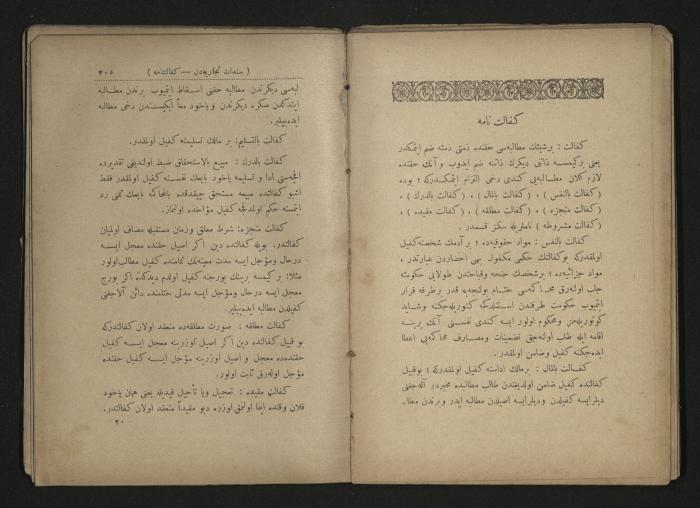 كفالت نامه
كفالت : برشيئك مطالبه‌سى حقنده ذمتى ذمته ضم ايتمكدر
يعنى بركيمسه ذاتى ديكرك ذاتنه ضم ايدوب و آنك حقنده
لازم كلان مطالبه‌يى كندى دخى التزام ايتمكدركه ؛ بوده
( كفالت بالنفس ) ، ( كفالت بالمال ) ، ( كفالت بالدرك ) ،
( كفالت منجزه ) ، ( كفالت مطلقه ) ، ( كفالت مقيده ) ،
( كفالت مشروطه ) ناملريله سكز قسمدر .
كفالت بالنفس : مواد حقوقيه‌ده ؛ بر آدمك شخصنه كفيل
اولمقدركه بوكفالتك حكمى مكفول بهى احضاردن عبارتدر ،
مواد جزائيه‌ده ؛ برشخصك جنحه وقباحتدن طولايى حكومته
جلب اولنه‌رق محاكمه‌سى ختام بولنجه‌يه قدر برطرفه فرار
ايتميوب حكومت طرفندن استنلدكجه كتوريله‌جكنه وشايد
كوتوريله‌مز ومحكوم اولور ايسه كندى نفسنى آنك يرينه
اقامه ايله طلب اولنه‌جق تضمينات ومصارف محاكمه‌يى اعطا
ايده‌جكنه كفيل وضامن اولمقدر .
كفالت بالمال : برمالك اداسنه كفيل اولمقدركه ؛ بوقبيل
كفالتده كفيل ضامن اولديغندن طالب مطالبه‌ده مخيردر آله‌جغنى
ديلر ايسه كفيلدن وديلر ايسه اصيلدن مطالبه ايدر وبرندن مطا-
( سندات تجاريه‌دن — كفالتنامه ) ٣٠٥
لبه‌سى ديكرندن مطالبه حقنى اسقاط ايتميوب برندن مطالبه
ايتدكدن صكره ديكرندن و ياخود معاً ايكيسندن دخى مطالبه
ايده‌بيلير.
كفالت بالتسليم: بر مالك تسليمنه كفيل اولمقدر.
كفالت بالدرك : مبيع بالاستحقاق ضبط اولنديغى تقديرده
اقچه‌سنى ادا و تسليمه ياخود بايعك نفسنه كفيل اولمقدر فقط
اشبو كفالتده مبيعه مستحق چيقدقده بالمحاكمه بايعك ثمنى رد
ايتمسنه حكم اولمدقجه كفيل مؤاخذه اولنماز.
كفالت منجزه: شرط معلق وزمان مستقبله مضاف اولميان
كفالتدر. بويله كفالتده دين اكر اصيل حقنده معجل ايسه
درحال ومؤجل ايسه مدت معينه‌نك ختامنده كفيل مطالب اولور
مثلا: بر كيمسه برينك بورجنه كفيل اولدم ديدكده اكر بورج
معجل ايسه درحال ومؤجل ايسه مدتى ختامنده دائن آلاجغنى
كفيلدن مطالبه ايده‌بيلير.
كفالت مطلقه : صورت مطلقه‌ده منعقد اولان كفالتدركه
بو قبيل كفالتده دين اكر اصيل اوزرينه معجل ايسه كفيل
حقنده‌ده معجل و اصيل اوزرينه مؤجل ايسه كفيل حقنده
مؤجل اوله‌رق ثابت اولور.
كفالت مقيده : تعجيل ويا تأجيل قيديله يعنى همان ياخود
فلان وقتده ايفا اولنمق اوزره ديو مقيداً منعقد اولان كفالتدر.
٢٠